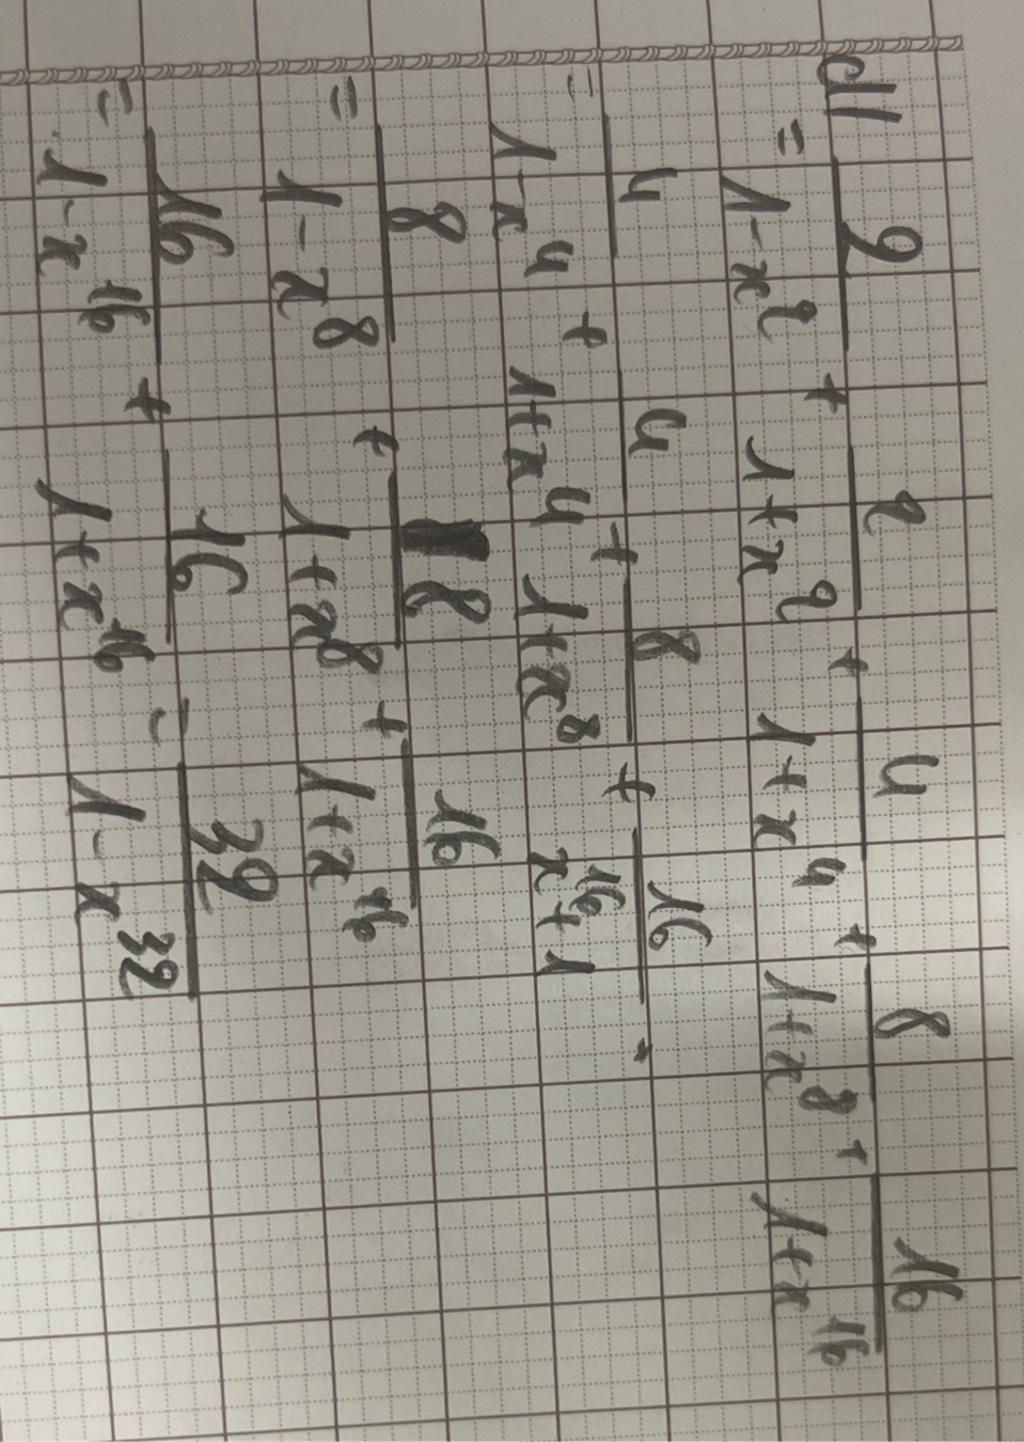 d) 2/(1-x²) + 2/(1+x²) + 4/(1+x⁴) + 8/(1+x⁸) + 16/(1+x¹⁶)
= 4/(1-x⁴) + 4/(1+x⁴) + 8/(1+x⁸) + 16/(x¹⁶+1) .
= 8/(1-x⁸) + 8/(1+x⁸) + 16/(1+x¹⁶)
= 16/(1-x¹⁶) + 16/(1+x¹⁶) - 32/(1-x³²)